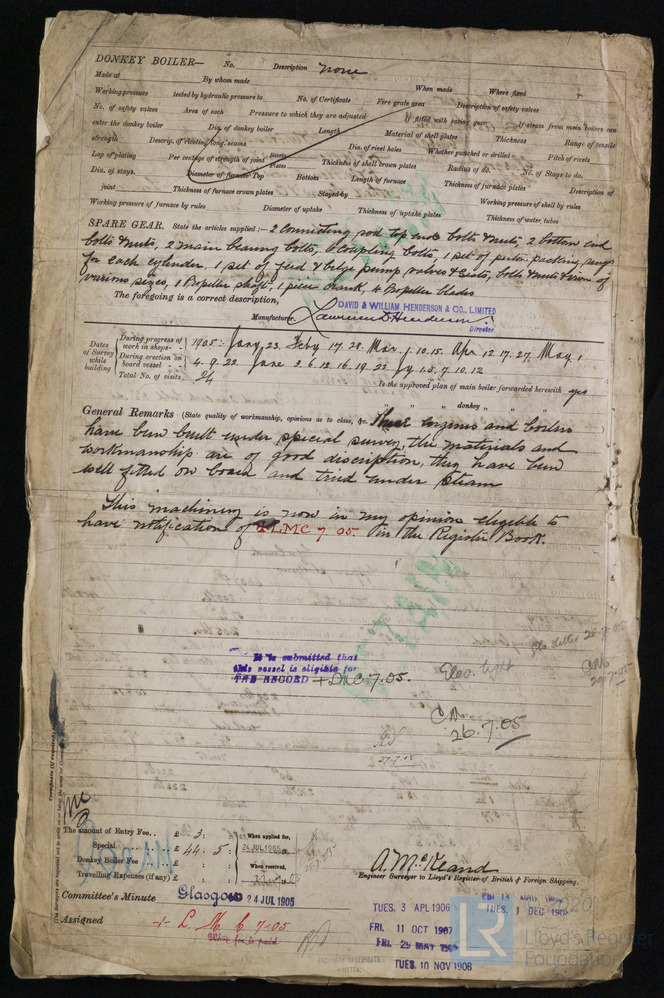 DONKEY BOILER— No. Description none
Made at By whom made When made Where fixed
Working pressure tested by hydraulic pressure to No. of Certificate Fire grate area Description of safety valves
No. of safety valves Area of each Pressure to which they are adjusted If fitted with easing gear If steam from main boilers can
enter the donkey boiler Dia. of donkey boiler Length Material of shell plates Thickness Range of tensile
strength Descrip. of riveting long. seams Dia. of rivet holes Whether punched or drilled Pitch of rivets
Lap of plating Per centage of strength of joint Rivets Plates Thickness of shell crown plates Radius of do. No. of Stays to do.
Dia. of stays. Diameter of furnace Top Bottom Length of furnace Thickness of furnace plates Description of
joint Thickness of furnace crown plates Stayed by Working pressure of shell by rules
Working pressure of furnace by rules Diameter of uptake Thickness of uptake plates Thickness of water tubes
SPARE GEAR. State the articles supplied:— 2 connecting rod top end bolts & nuts, 2 bottom end
bolts & nuts, 2 main bearing bolts, 6 coupling bolts, 1 set of piston packing rings
for each cylinder, 1 set of feed & bilge pump valves & seats, bolts & nuts & iron of
various sizes, 1 Propeller shaft, 1 piece crank, 4 Propeller blades
The foregoing is a correct description,
DAVID & WILLIAM HENDERSON & CO., LIMITED
Manufacturer. Lawrence Henderson
Director.
Dates of Survey while building
During progress of work in shops - - 1905: Jany. 23. Feby 17. 28. Mar. 1. 10. 15. Apr. 12. 17. 27. May. 1
During erection on board vessel - - - 4. 9. 22 June 2. 6. 12. 16. 19. 22 Jy 1. 5. 7. 10. 12
Total No. of visits 24
Is the approved plan of main boiler forwarded herewith yes
" " " donkey " " "
General Remarks (State quality of workmanship, opinions as to class, &c. These engines and boilers
have been built under special survey, the materials and
workmanship are of good discription, they have been
well fitted on board and tried under steam
This machinery is now in my opinion eligible to
have notification of + LMC 7. 05. in the Register Book.
It is submitted that
this vessel is eligible for
THE RECORD + LMC 7.05. Elec. light
26.7.05
27.7.05
Certificate (if required)
The amount of Entry Fee.. £ 3 : When applied for,
Special .. £ 44 : 5 : 24 JUL 1905
Donkey Boiler Fee .. £ : : When received,
Travelling Expenses (if any) £ : :
A. McKeand
Engineer Surveyor to Lloyd's Register of British & Foreign Shipping.
Committee's Minute Glasgow 24 JUL 1905
Assigned + L. M. C. 7. 05
TUES. 3 APL 1906
TUES. 1 DEC
FRI. 11 OCT 1907
FRI. 29 MAY
TUES. 10 NOV 1908
LR
2020
Lloyd's Register
Foundation